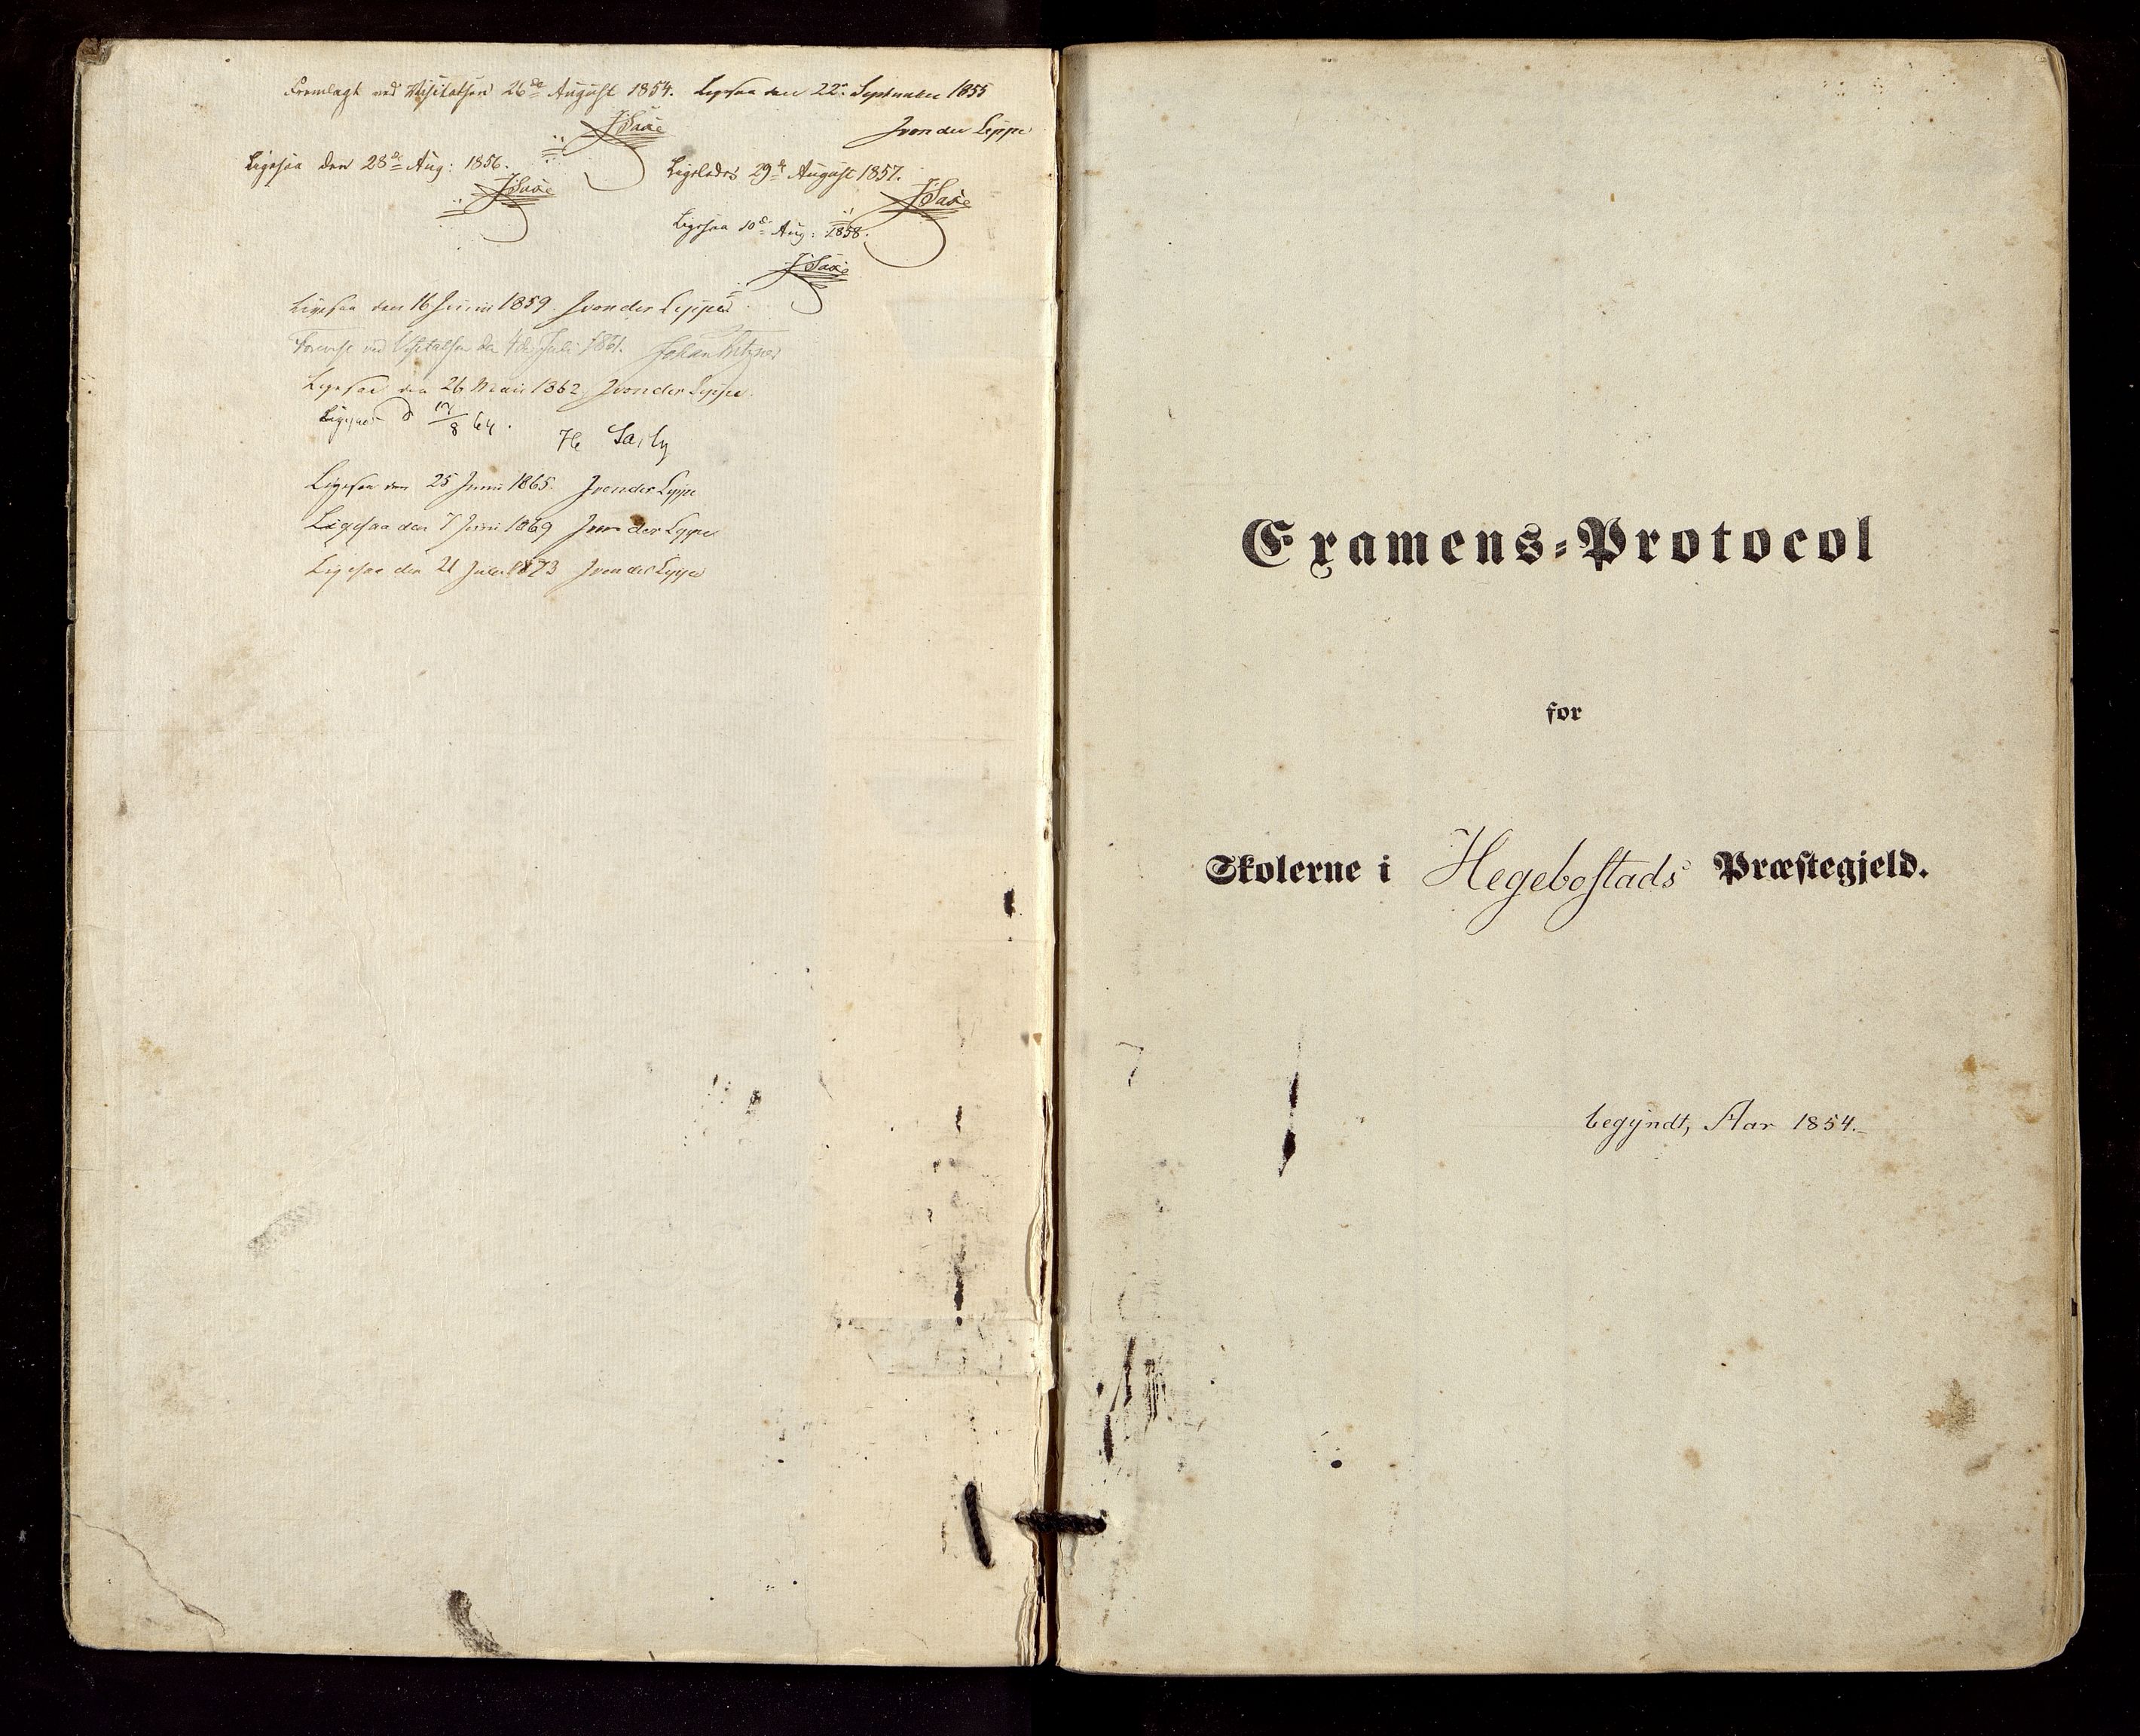 Fremlagt ved Visitatsen 26de August 1854. Ligesaa den 22de September 1855
JSaxe
J von der Lippe
Ligesaa den 28de Aug: 1856.
JSaxe
Ligeledes 29de August 1857.
JSaxe
Ligesaa 10de Aug: 1858.
JSaxe
Ligesaa den 16 Junii 1859 J von der Lippe
ved Visitatsen den Juli 1861. Johan
Ligesaa den 26 Maii 1862 J von der Lippe
Ligesaa d 17/8 64.
Ligesaa den 25 Junii 1865. J von der Lippe
Ligesaa den 7 Juni 1869 J von der Lippe
Ligesaa den 21 Juli 1873 J von der Lippe
Examens-Protocol
for
Skolerne i Hegebostads Præstegjeld.
begyndt, Aar 1854.